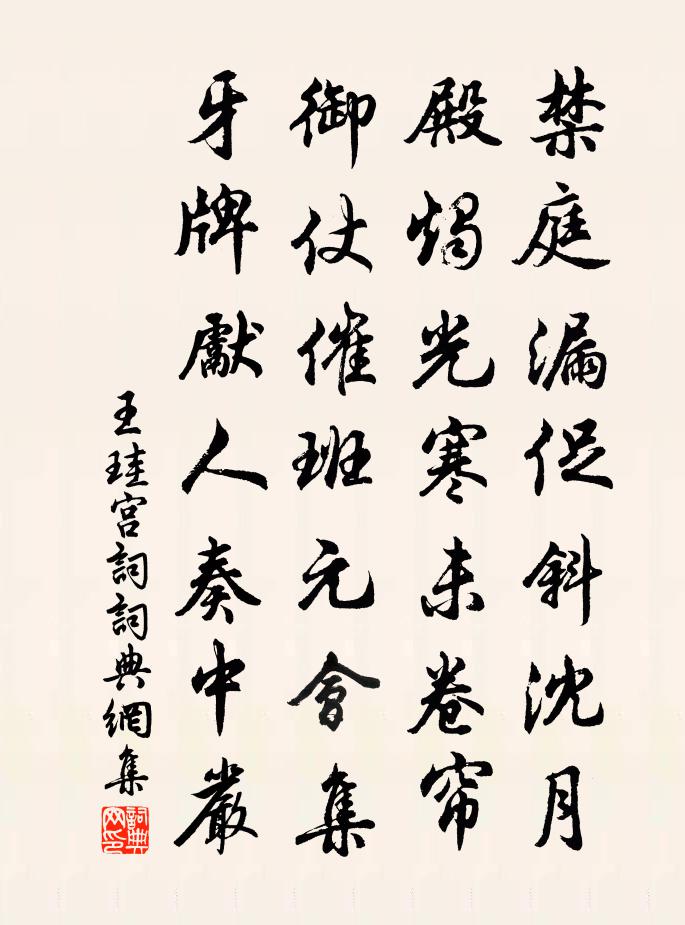 禁庭漏促斜沈月
殿燭光寒未卷帘
御仗催班元會集
牙牌獻人奏中嚴
王珪宮詞詞典網集
詞典
网印